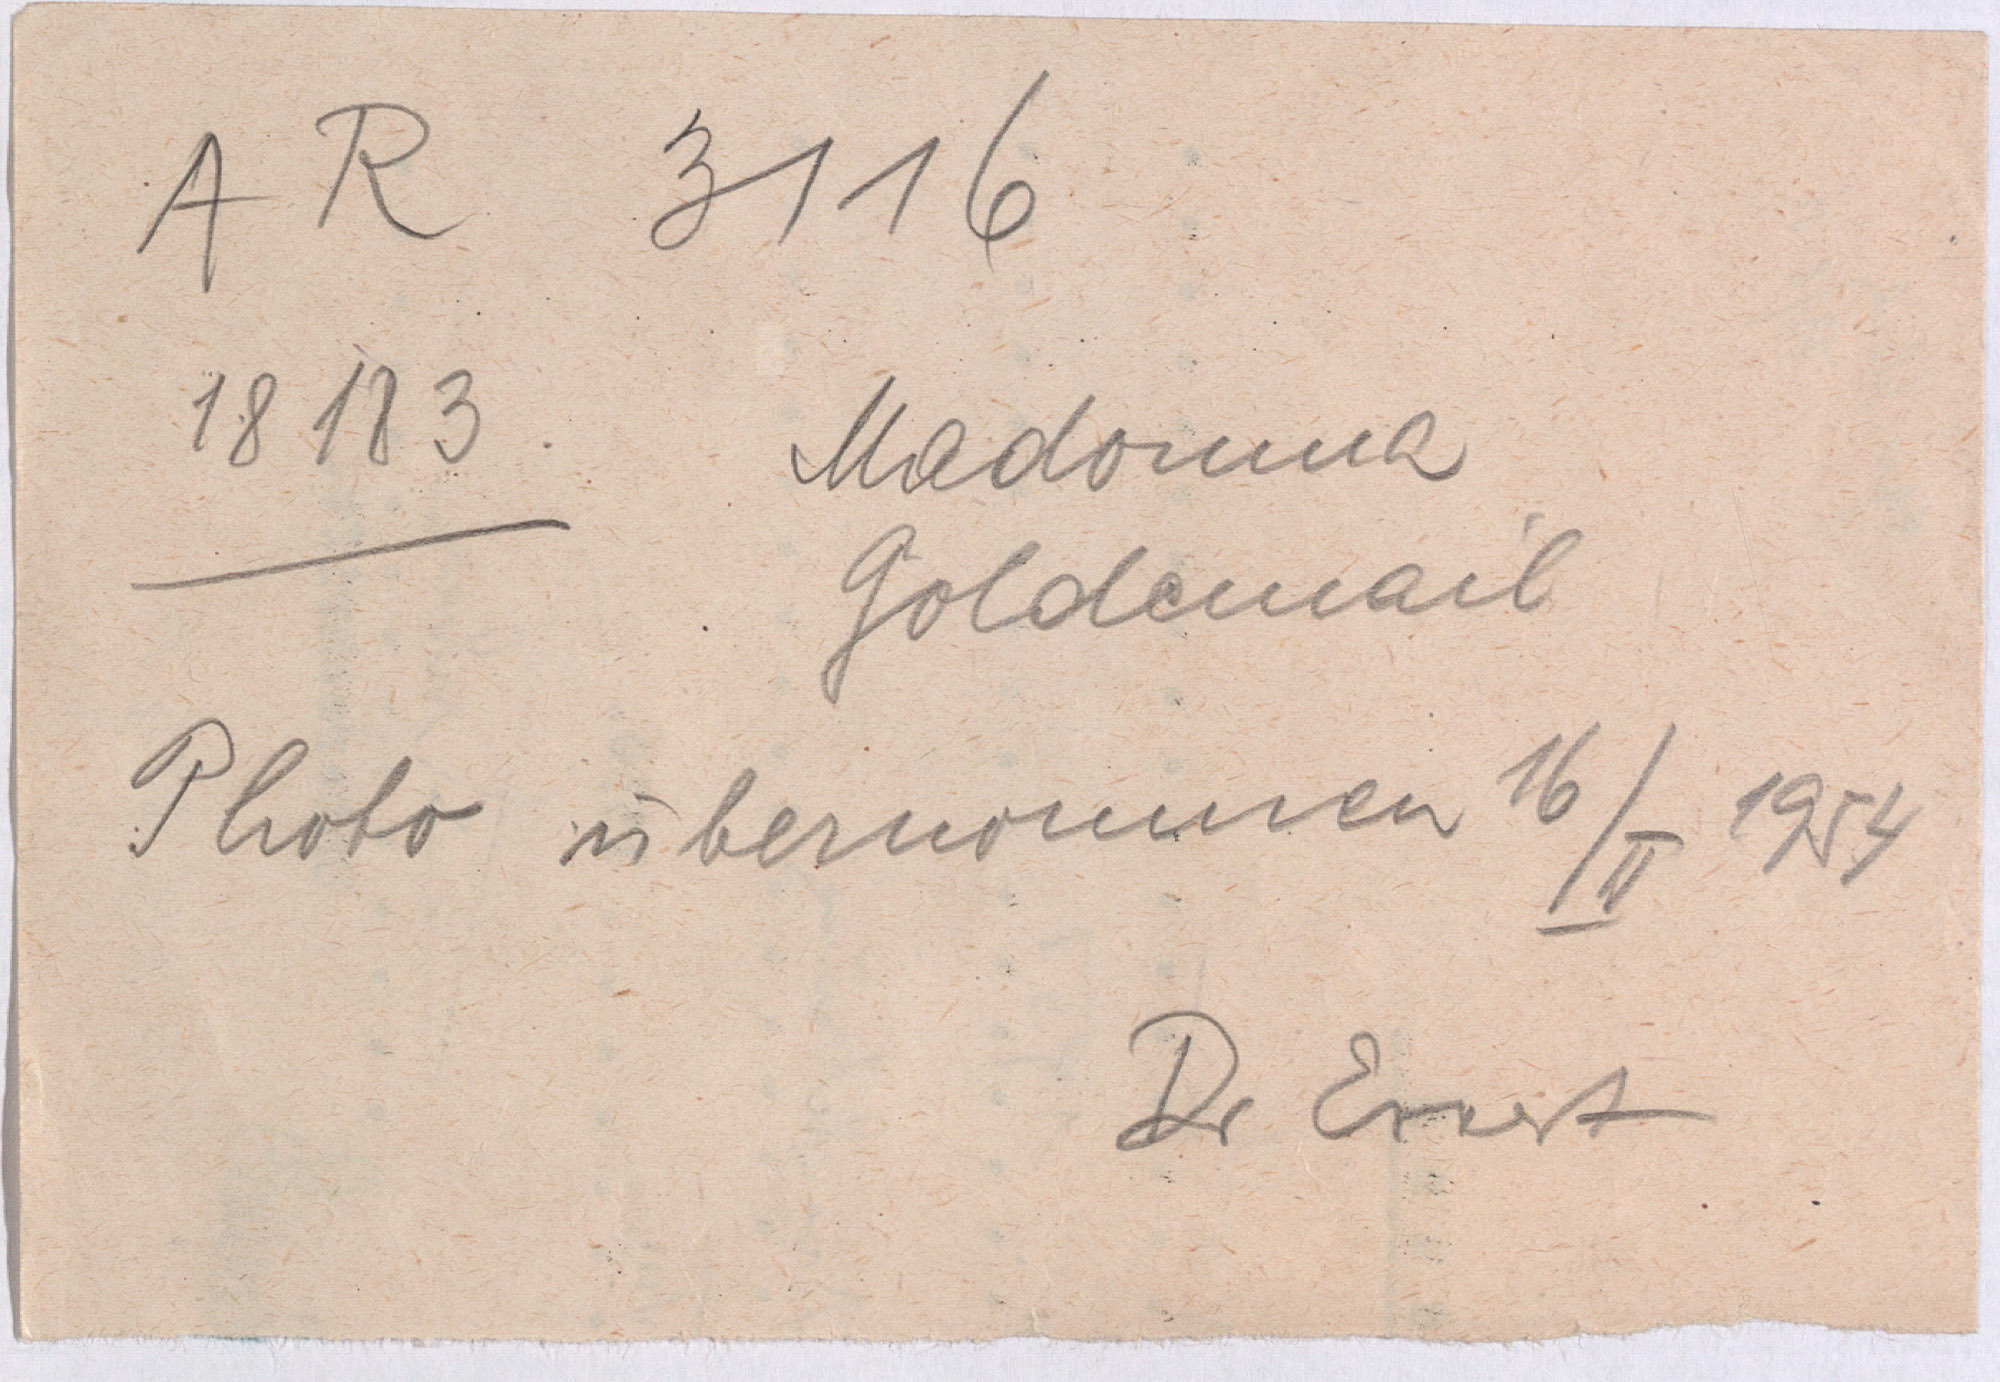 AR 3116
18183. Madonna
Goldemail
Photo übernommen 16/II 1954
Dr Ernst